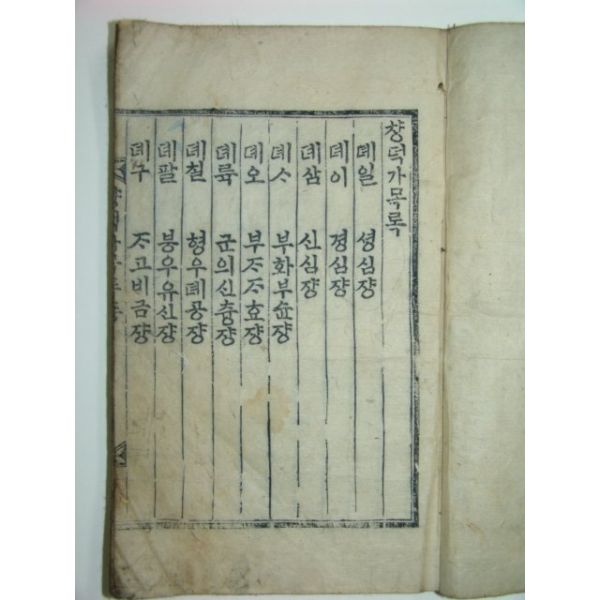 챵덕가목록
뎨일 셩심쟝
뎨이 경심쟝
뎨삼 신심쟝
뎨ᄉᆞ 부화부슌쟝
뎨오 부ᄌᆞᄌᆞ효쟝
뎨륙 군의신츙쟝
뎨칠 형우뎨공쟝
뎨팔 붕우유신쟝
뎨구 ᄌᆞ고비금쟝